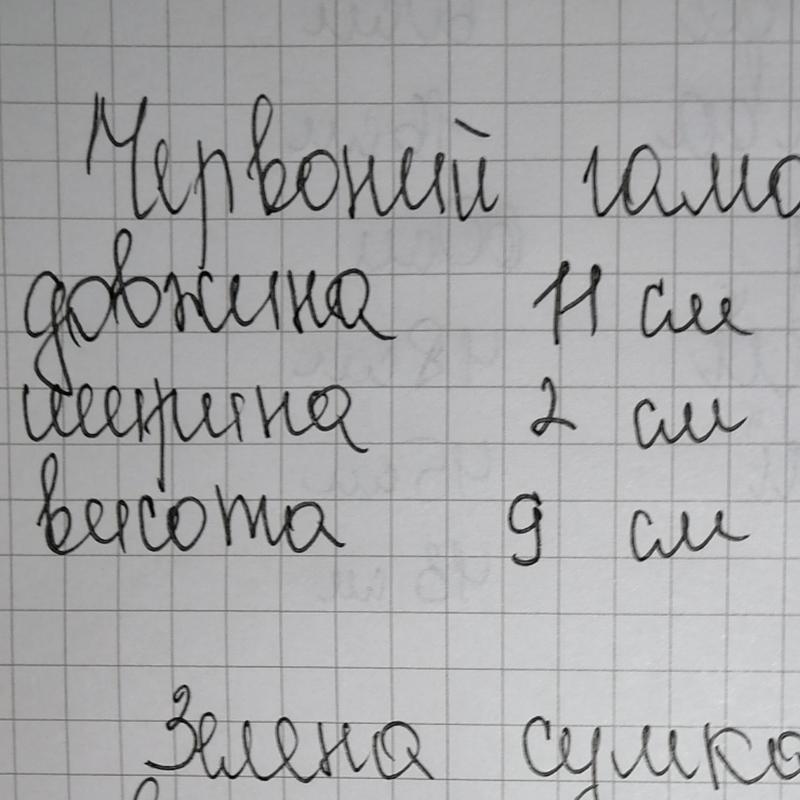 Червоний гама
довжина 11 см
ширина 2 см
висота 9 см
Зелена сумка